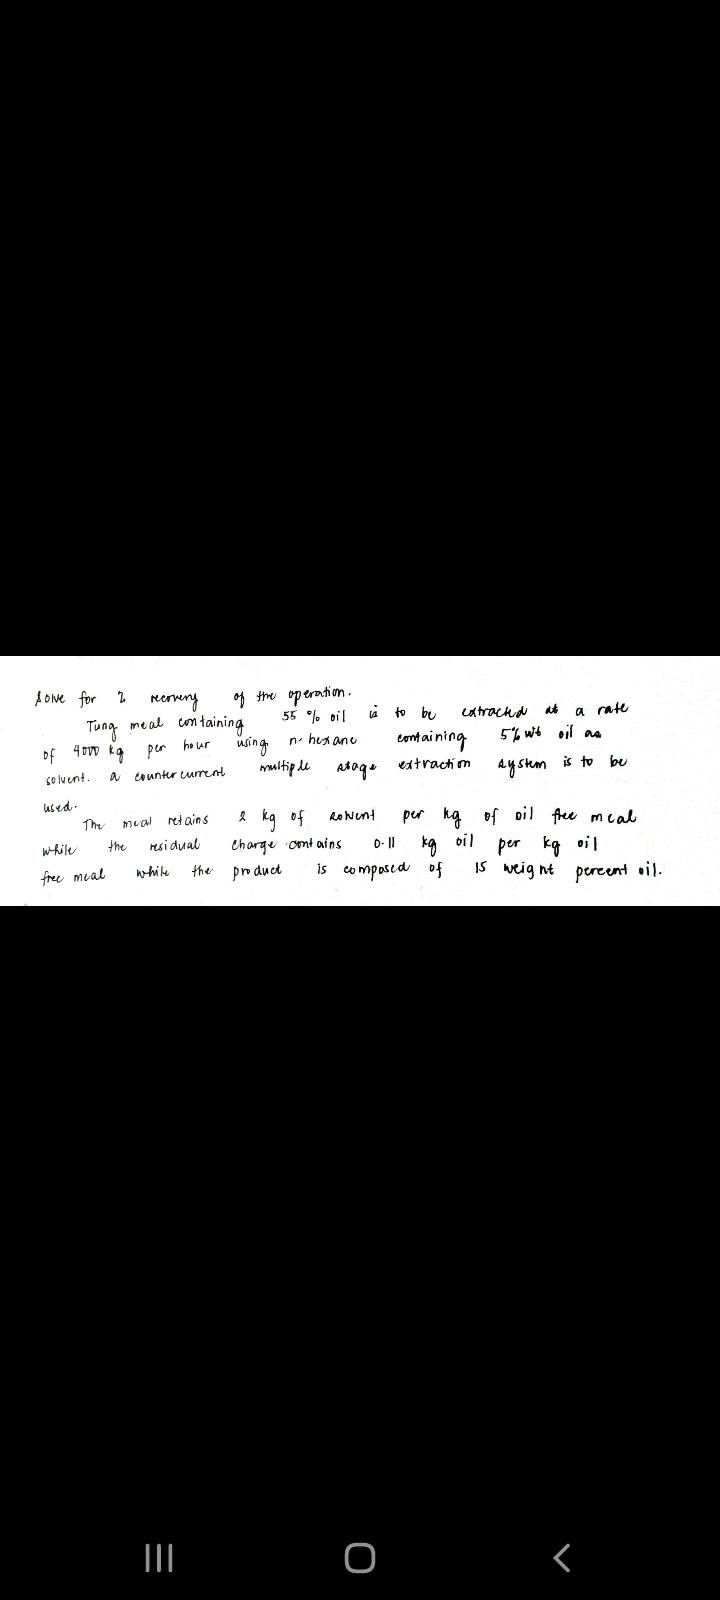 Solve for % recovery of the operation.
Tung meal containing 55 % oil is to be extracted at a rate
of 4000 kg per hour using n-hexane containing 5% wt oil as
solvent. a countercurrent multiple stage extraction system is to be
used.
The meal retains 2 kg of solvent per kg of oil free meal
while the residual charge contains 0.11 kg oil per kg oil
free meal while the product is composed of 15 weight percent oil.